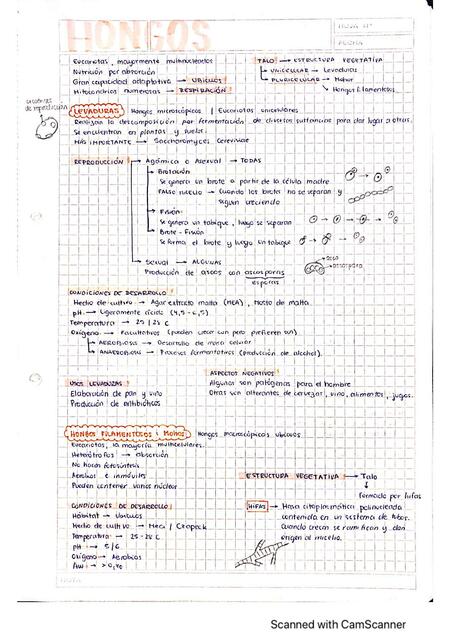 HONGOS
HOJA Nº
FECHA
Eucariotas, mayormente multinucleados
Nutrición por absorción
Gran capacidad adaptativa → UBICUOS
Mitocondrias numerosas → RESPIRACIÓN
TALO → ESTRUCTURA VEGETATIVA
UNICELULAR → Levaduras
PLURICELULAR → Mohos
Hongos filamentosos
LEVADURAS Hongos microscópicos | Eucariotas unicelulares
Realizan la descomposición por fermentación de diversas sustancias para dar lugar a otras.
Se encuentran en plantas y suelos.
MÁS IMPORTANTE → Saccharomyces Cerevisiae
REPRODUCCIÓN → Agámica o Asexual → TODAS
Brotación
Se genera un brote a partir de la célula madre
FALSO MICELIO → Cuando los brotes no se separan y
siguen creciendo
Fisión
Se genera un tabique, luego se separan
Brote - Fisión
Se forma el brote y luego un tabique
Sexual → ALGUNAS
Producción de ascos con ascosporas
esporas
asco
ascospora
CONDICIONES DE DESARROLLO
Medio de cultivo → Agar extracto malta (MEA), mosto de malta.
pH → Ligeramente ácido (4,5 - 6,5)
Temperatura → 25 / 28 C
Oxígeno → Facultativos (pueden crecer con pero prefieren sin)
AEROBIOSIS → Desarrollo de masa celular
ANAEROBIOSIS → Procesos fermentativos (producción de alcohol).
USOS LEVADURAS
Elaboración de pan y vino
Producción de antibióticos
ASPECTOS NEGATIVOS
Algunas son patógenas para el hombre
Otras son alterantes de cervezas, vino, alimentos, jugos.
HONGOS FILAMENTOSOS | Mohos Hongos macroscópicos ubicuos
Eucariotas, la mayoría multicelulares.
Heterótrofos → absorción
No hacen fotosíntesis
Aerobios e inmóviles
Pueden contener varios núcleos
ESTRUCTURA VEGETATIVA → Talo
formado por hifas
CONDICIONES DE DESARROLLO
Hábitat → Ubicuos
Medio de cultivo → Mea / Czapeck
Temperatura → 25 - 28 C
pH → 5/6
Oxígeno → Aerobios
HIFAS → Masa citoplasmática polinucleada
contenida en un sistema de tubos.
Cuando crecen se ramifican y dan
origen al micelio.
Scanned with CamScanner